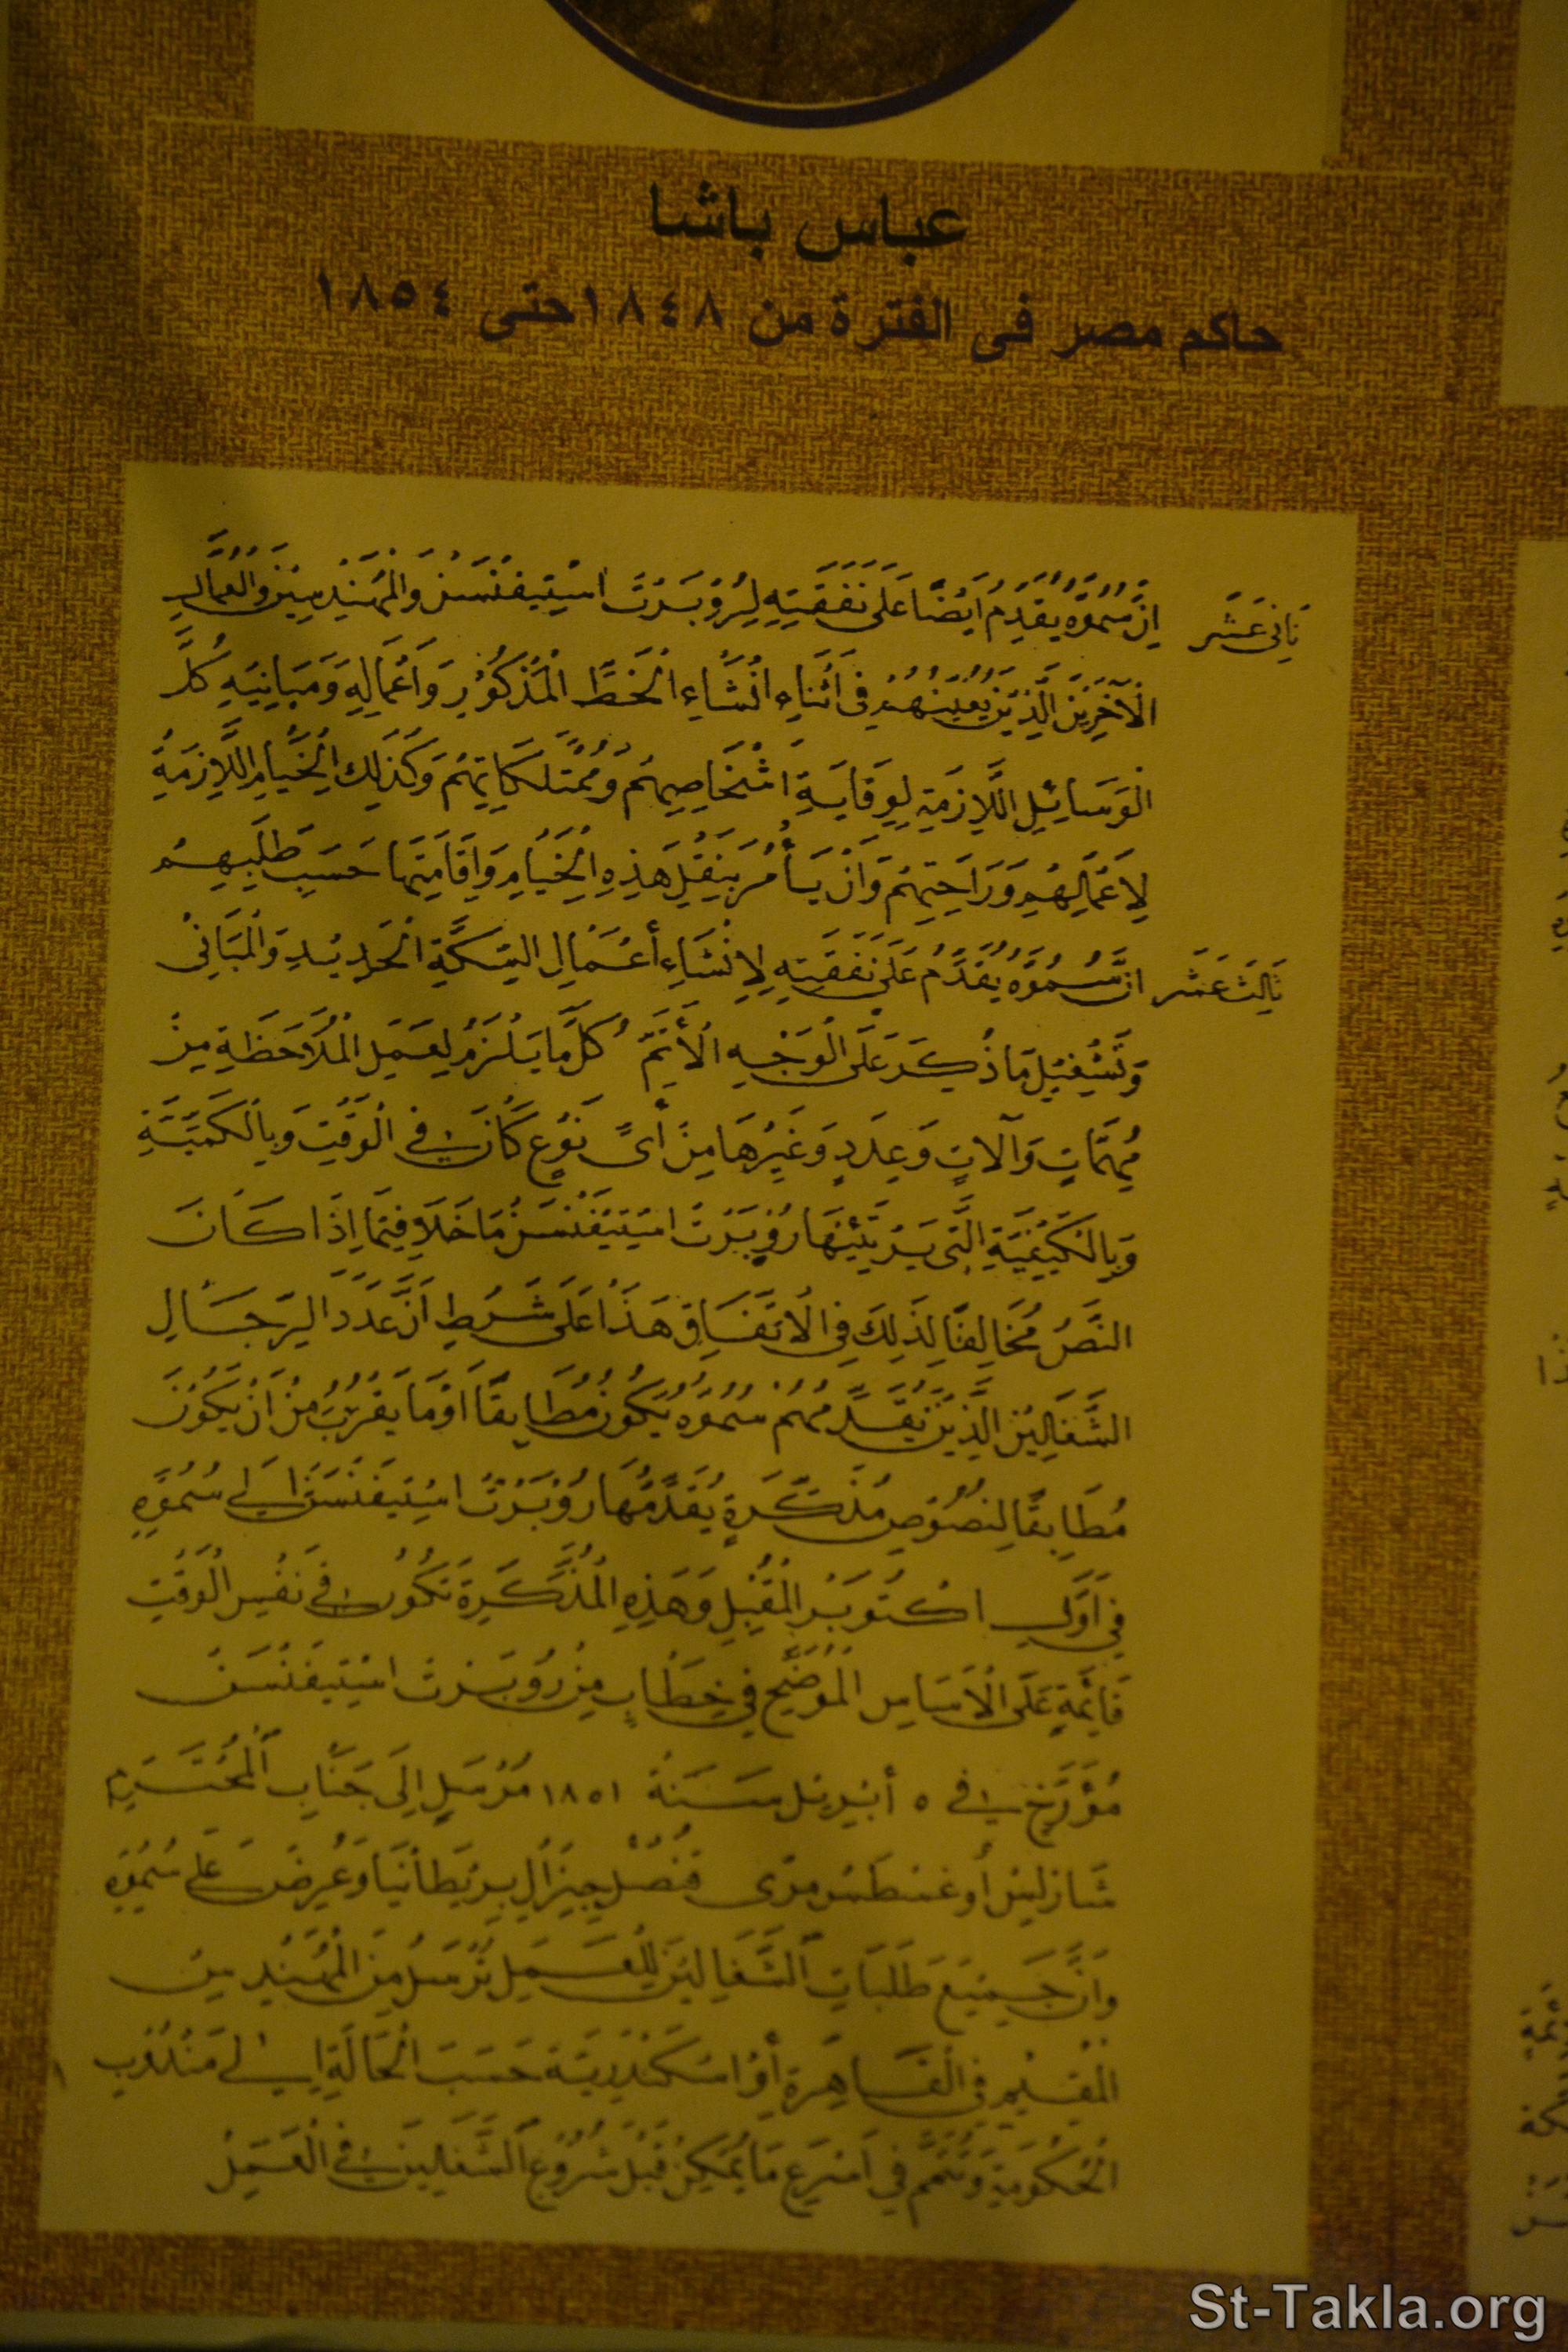 عباس باشا
حاكم مصر فى الفترة من ١٨٤٨ حتى ١٨٥٤
ثَانِى عَشَر اِنَّ سُمُوَّهُ يُقَدِّمُ اَيْضًا عَلَى نَفَقَتِهِ لِرُوْبَرْتَ اسْتِيفِنْسَنْ وَالْمُهَنْدِسِيْنَ وَالْعُمَّالِ
الْآخَرِيْنَ الَّذِيْنَ يُعَيِّنُهُمْ فِى اَثْنَاءِ انْشَاءِ الْخَطِّ الْمَذْكُوْرِ وَاَعْمَالِهِ وَمَبَانِيَهِ كُلَّ
الْوَسَائِلِ اللَّازِمَةِ لِوِقَايَةِ اَشْخَاصِهِمْ وَمُمْتَلَكَاتِهِمْ وَكَذَلِكَ الْخِيَامِ اللَّازِمَةُ
لِاَعْمَالِهِمْ وَرَاحَتِهِمْ وَاَنْ يَأْمُرَ بِنَقْلِ هَذِهِ الْخِيَامِ وَاِقَامَتِهَا حَسَبَ طَلَبِهِمْ
ثَالِثَ عَشَر اِنَّ سُمُوَّهُ يُقَدِّمُ عَلَى نَفَقَتِهِ لِاِنْشَاءِ أَعْمَالِ السِّكَّةِ الْحَدِيْدِ وَالْمَبَانِىْ
وَتَشْغِيْلِ مَا ذُكِرَ عَلَى الْوَجْهِ الْأَتَمِّ كُلَّ مَا يَلْزَمُ لِعَمَلِ الْمُلَاحَظَةِ مِنْ
مُهِمَّاتٍ وَآلَاتٍ وَعِدَدٍ وَغَيْرِهَا مِنْ أَىِّ نَوْعٍ كَانَ فِى الْوَقْتِ وَبِالْكَمِّيَّةِ
وَبِالْكَيْفِيَّةِ الَّتِى يَرْتَئِيْهَا رُوْبَرْتُ اسْتِيْفِنْسَنْ مَا خَلَا فِيْمَا اِذَا كَانَ
النَّصُّ مُخَالِفًا لِذَلِكَ فِى الْاِتِّفَاقِ هَذَا عَلَى شَرْطِ اَنَّ عَدَدَ الرِّجَالِ
الشَّغَّالِيْنَ الَّذِيْنَ يُقَدِّمُهُمْ سُمُوُّهُ يَكُوْنُ مُطَابِقًا اَوْ مَا يَقْرُبُ مِنْ اَنْ يَكُوْنَ
مُطَابِقًا لِنُصُوْصِ مُذَكِّرَةٍ يُقَدِّمُهَا رُوْبَرْتُ اسْتِيفِنْسَنْ اِلَى سُمُوِّهِ
فِى اَوَّلِ اكْتُوبَرْ الْمُقْبِلِ وَهَذِهِ الْمُذَكِّرَةُ تَكُوْنُ فِى نَفْسِ الْوَقْتِ
قَائِمَةً عَلَى الْاَسَاسِ الْمُوَضَّحِ فِى خِطَابٍ مِنْ رُوْبَرْتْ اسْتِيفِنْسَنْ
مُؤَرَّخٍ فِى ٥ أَبْرِيْلَ سَنَةَ ١٨٥١ مُرْسَلٍ اِلَى جَنَابِ الْمُحْتَرَمِ
شَارْلِيْسْ أُوغَسْطَسْ مَرَى قُنْصُلْ جِنِرَالِ بِرِيْطَانْيَا وَعُرِضَ عَلَى سُمُوِّهِ
وَاَنَّ جَمِيْعَ طَلَبَاتِ الشَّغَّالِيْنَ لِلْعَمَلِ تُرْسَلُ مِنَ الْمُهَنْدِسِيْنَ
الْمُقِيْمِ فِى الْقَاهِرَةِ أَوْ اسْكَنْدَرِيَّةَ حَسَبَ الْحَالَةِ اِلَى مَنْدُوْبِ
الْحُكُوْمَةِ وَتُتَمَّمُ فِى اَسْرَعِ مَا يُمْكِنُ قَبْلَ شُرُوْعِ الشَّغَّالِيْنَ فِى الْعَمَلِ
St-Takla.org